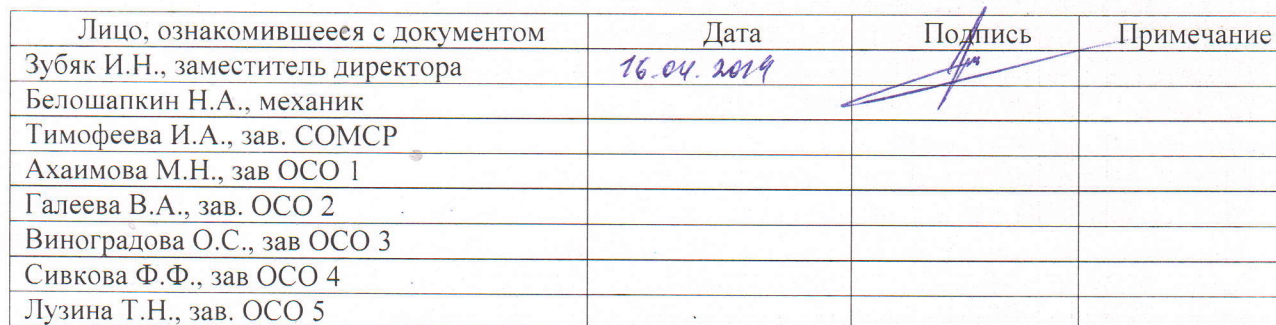 Лицо, ознакомившееся с документом Дата Подпись Примечание
Зубяк И.Н., заместитель директора 16.04.2019
Белошапкин Н.А., механик
Тимофеева И.А., зав. СОМСР
Ахаимова М.Н., зав ОСО 1
Галеева В.А., зав. ОСО 2
Виноградова О.С., зав ОСО 3
Сивкова Ф.Ф., зав ОСО 4
Лузина Т.Н., зав. ОСО 5